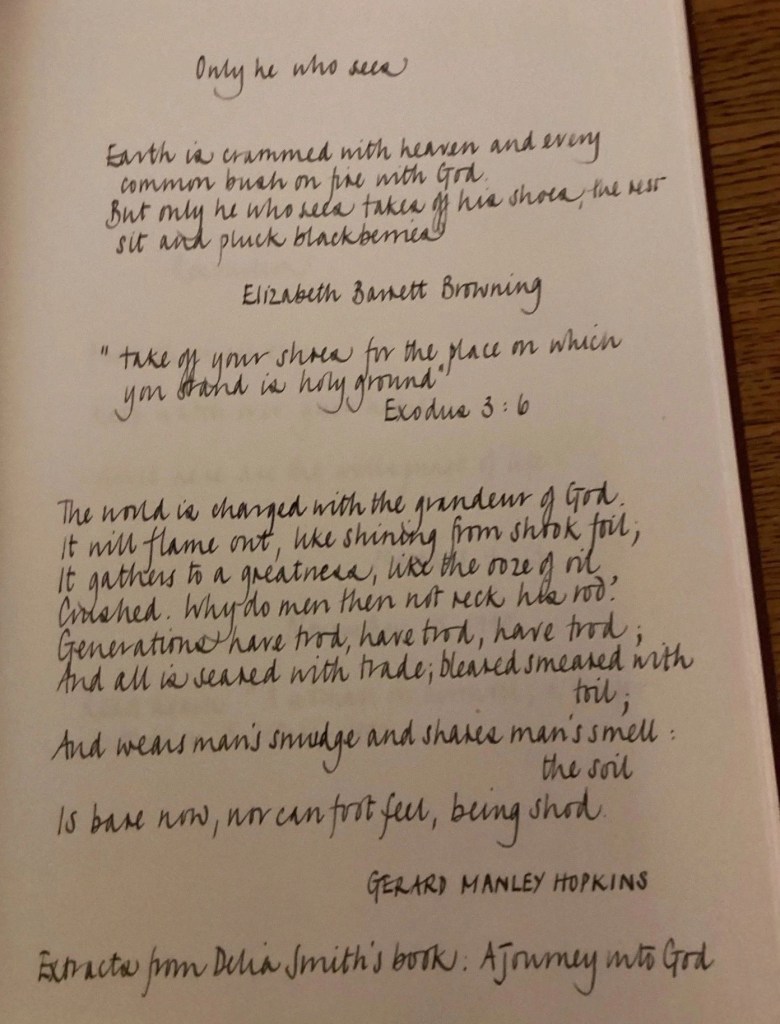 Only he who sees
Earth is crammed with heaven and every
common bush on fire with God.
But only he who sees takes off his shoes, the rest
sit and pluck blackberries
Elizabeth Barrett Browning
"take off your shoes for the place on which
you stand is holy ground"
Exodus 3:6
The world is charged with the grandeur of God.
It will flame out, like shining from shook foil;
It gathers to a greatness, like the ooze of oil
Crushed. Why do men then not reck his rod?
Generations have trod, have trod, have trod;
And all is seared with trade; bleared smeared with
toil;
And wears man's smudge and shares man's smell:
the soil
Is bare now, nor can foot feel, being shod.
GERARD MANLEY HOPKINS
Extracts from Delia Smith's book: A Journey into God